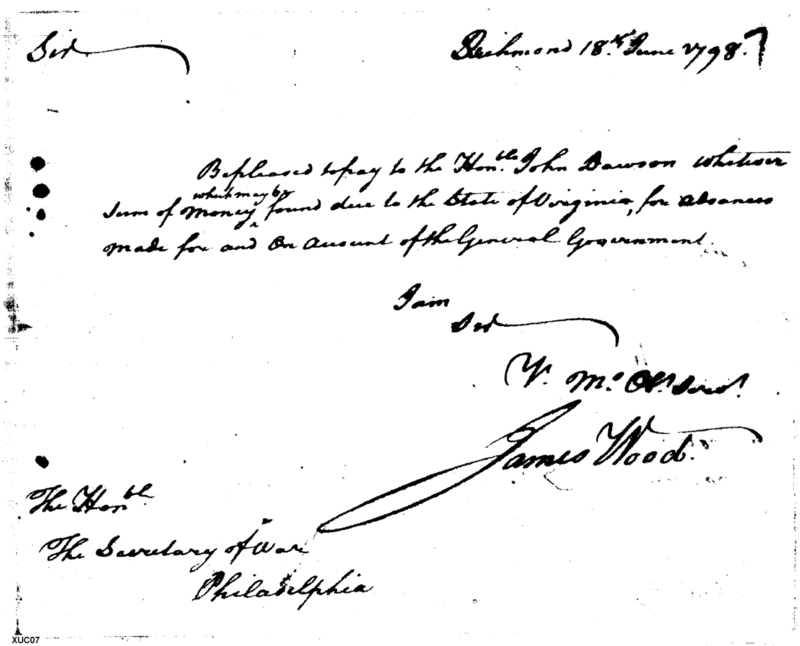 Richmond 18th June 1798.
Sir
Be pleased to pay to the Honble. John Dawson whatever
which may be
Sum of Money found due to the State of Virginia, for advances
made for and On Account of the General Government.
I am
Sir
Yr. Mo. Ob. Servt.
James Wood.
The Honble.
The Secretary of War
Philadelphia
XUC07